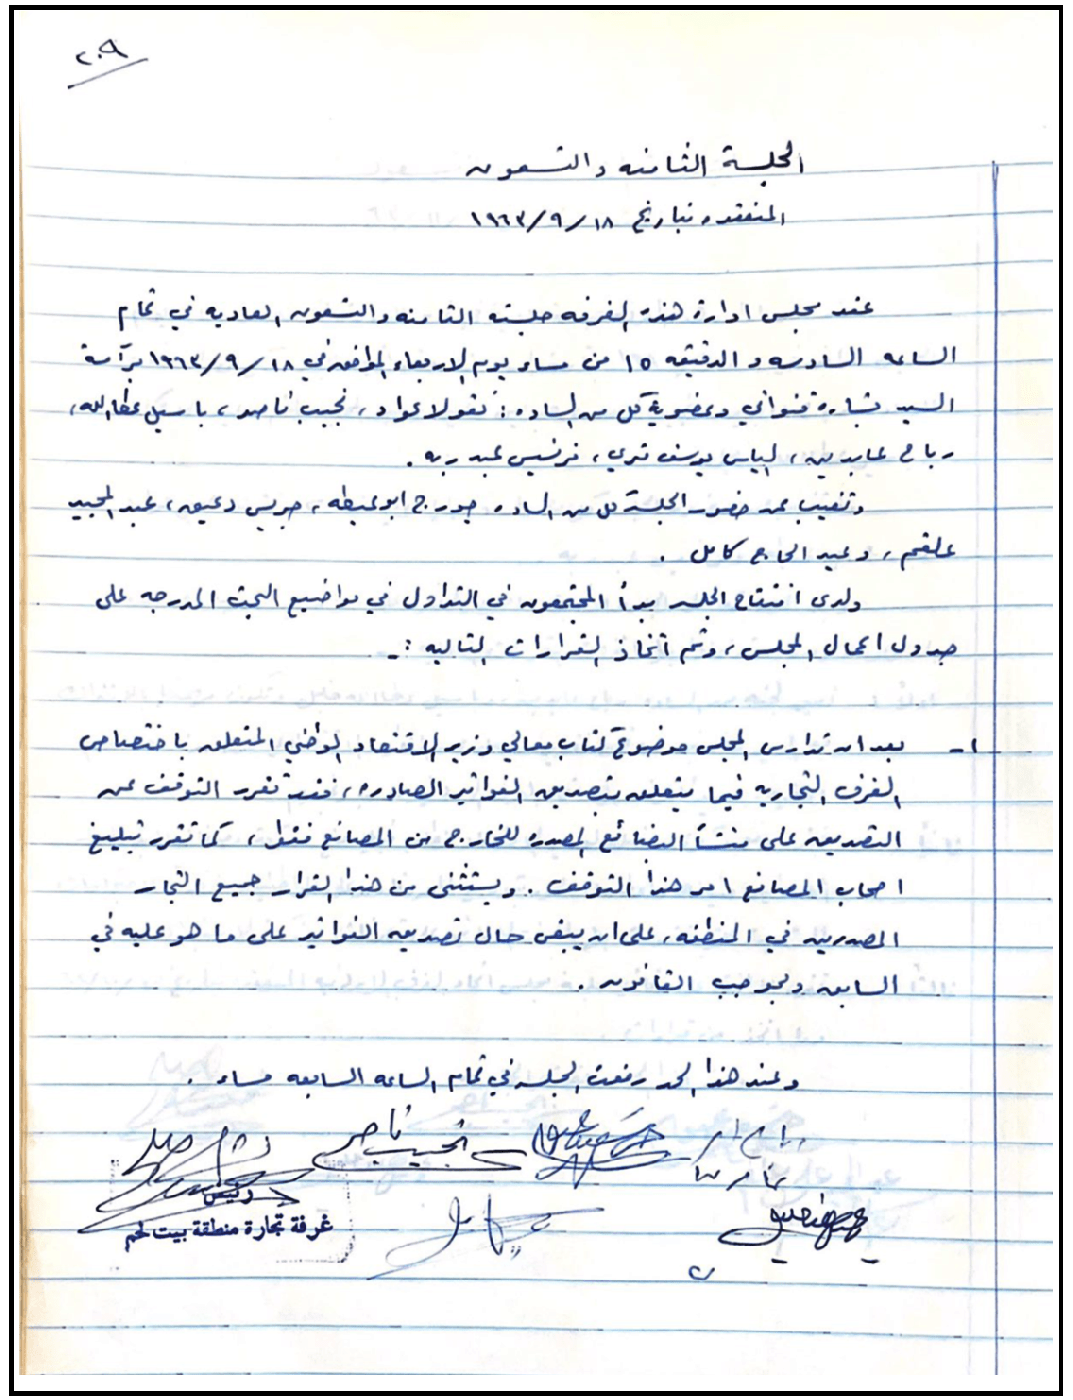 ٢٠٩
الجلسة الثامنه والتسعون
المنعقده بتاريخ ١٨/٩/١٩٦٣
عقد مجلس ادارة هذه الغرفه جلسته الثامنه والتسعون العاديه في تمام
الساعه السادسه و الدقيقه ١٥ من مساء يوم الاربعاء الموافق في ١٨/٩/١٩٦٣ برآسة
السيد بشاره قنواتي وعضوية كل من الساده: نقولا عواد، نجيب ناصر، باسيل عطاالله،
رباح عابدين، الياس يوسف تري، فرنسيس عبد ربه.
وتغيب عن حضور الجلسة كل من الساده جورج ابو عيطه، جريس دعيق، عبد المجيد
علقم، وعبد الحاج كامل.
ولدى افتتاح الجلسه بدأ المجتمعون في التداول في مواضيع البحث المدرجه على
جدول اعمال المجلس، وتم اتخاذ القرارات التاليه :-
١- بعد ان تدارس المجلس موضوع كتاب معالي وزير الاقتصاد الوطني المتعلق باختصاص
الغرف التجاريه فيما يتعلق بتصديق الفواتير الصادره، فقد تقرر التوقف عن
التصديق على منشأ البضائع المصدره للخارج من المصانع فقط، كما تقرر تبليغ
اصحاب المصانع امر هذا التوقف. ويستثنى من هذا القرار جميع التجار
المصدرين في المنطقه، على ان يبقى حال تصديق الفواتير على ما هو عليه في
السابق وبموجب القانون.
وعند هذا الحد رفعت الجلسه في تمام الساعه السابعه مساء.
نجيب ناصر
رئيس
غرفة تجارة منطقة بيت لحم